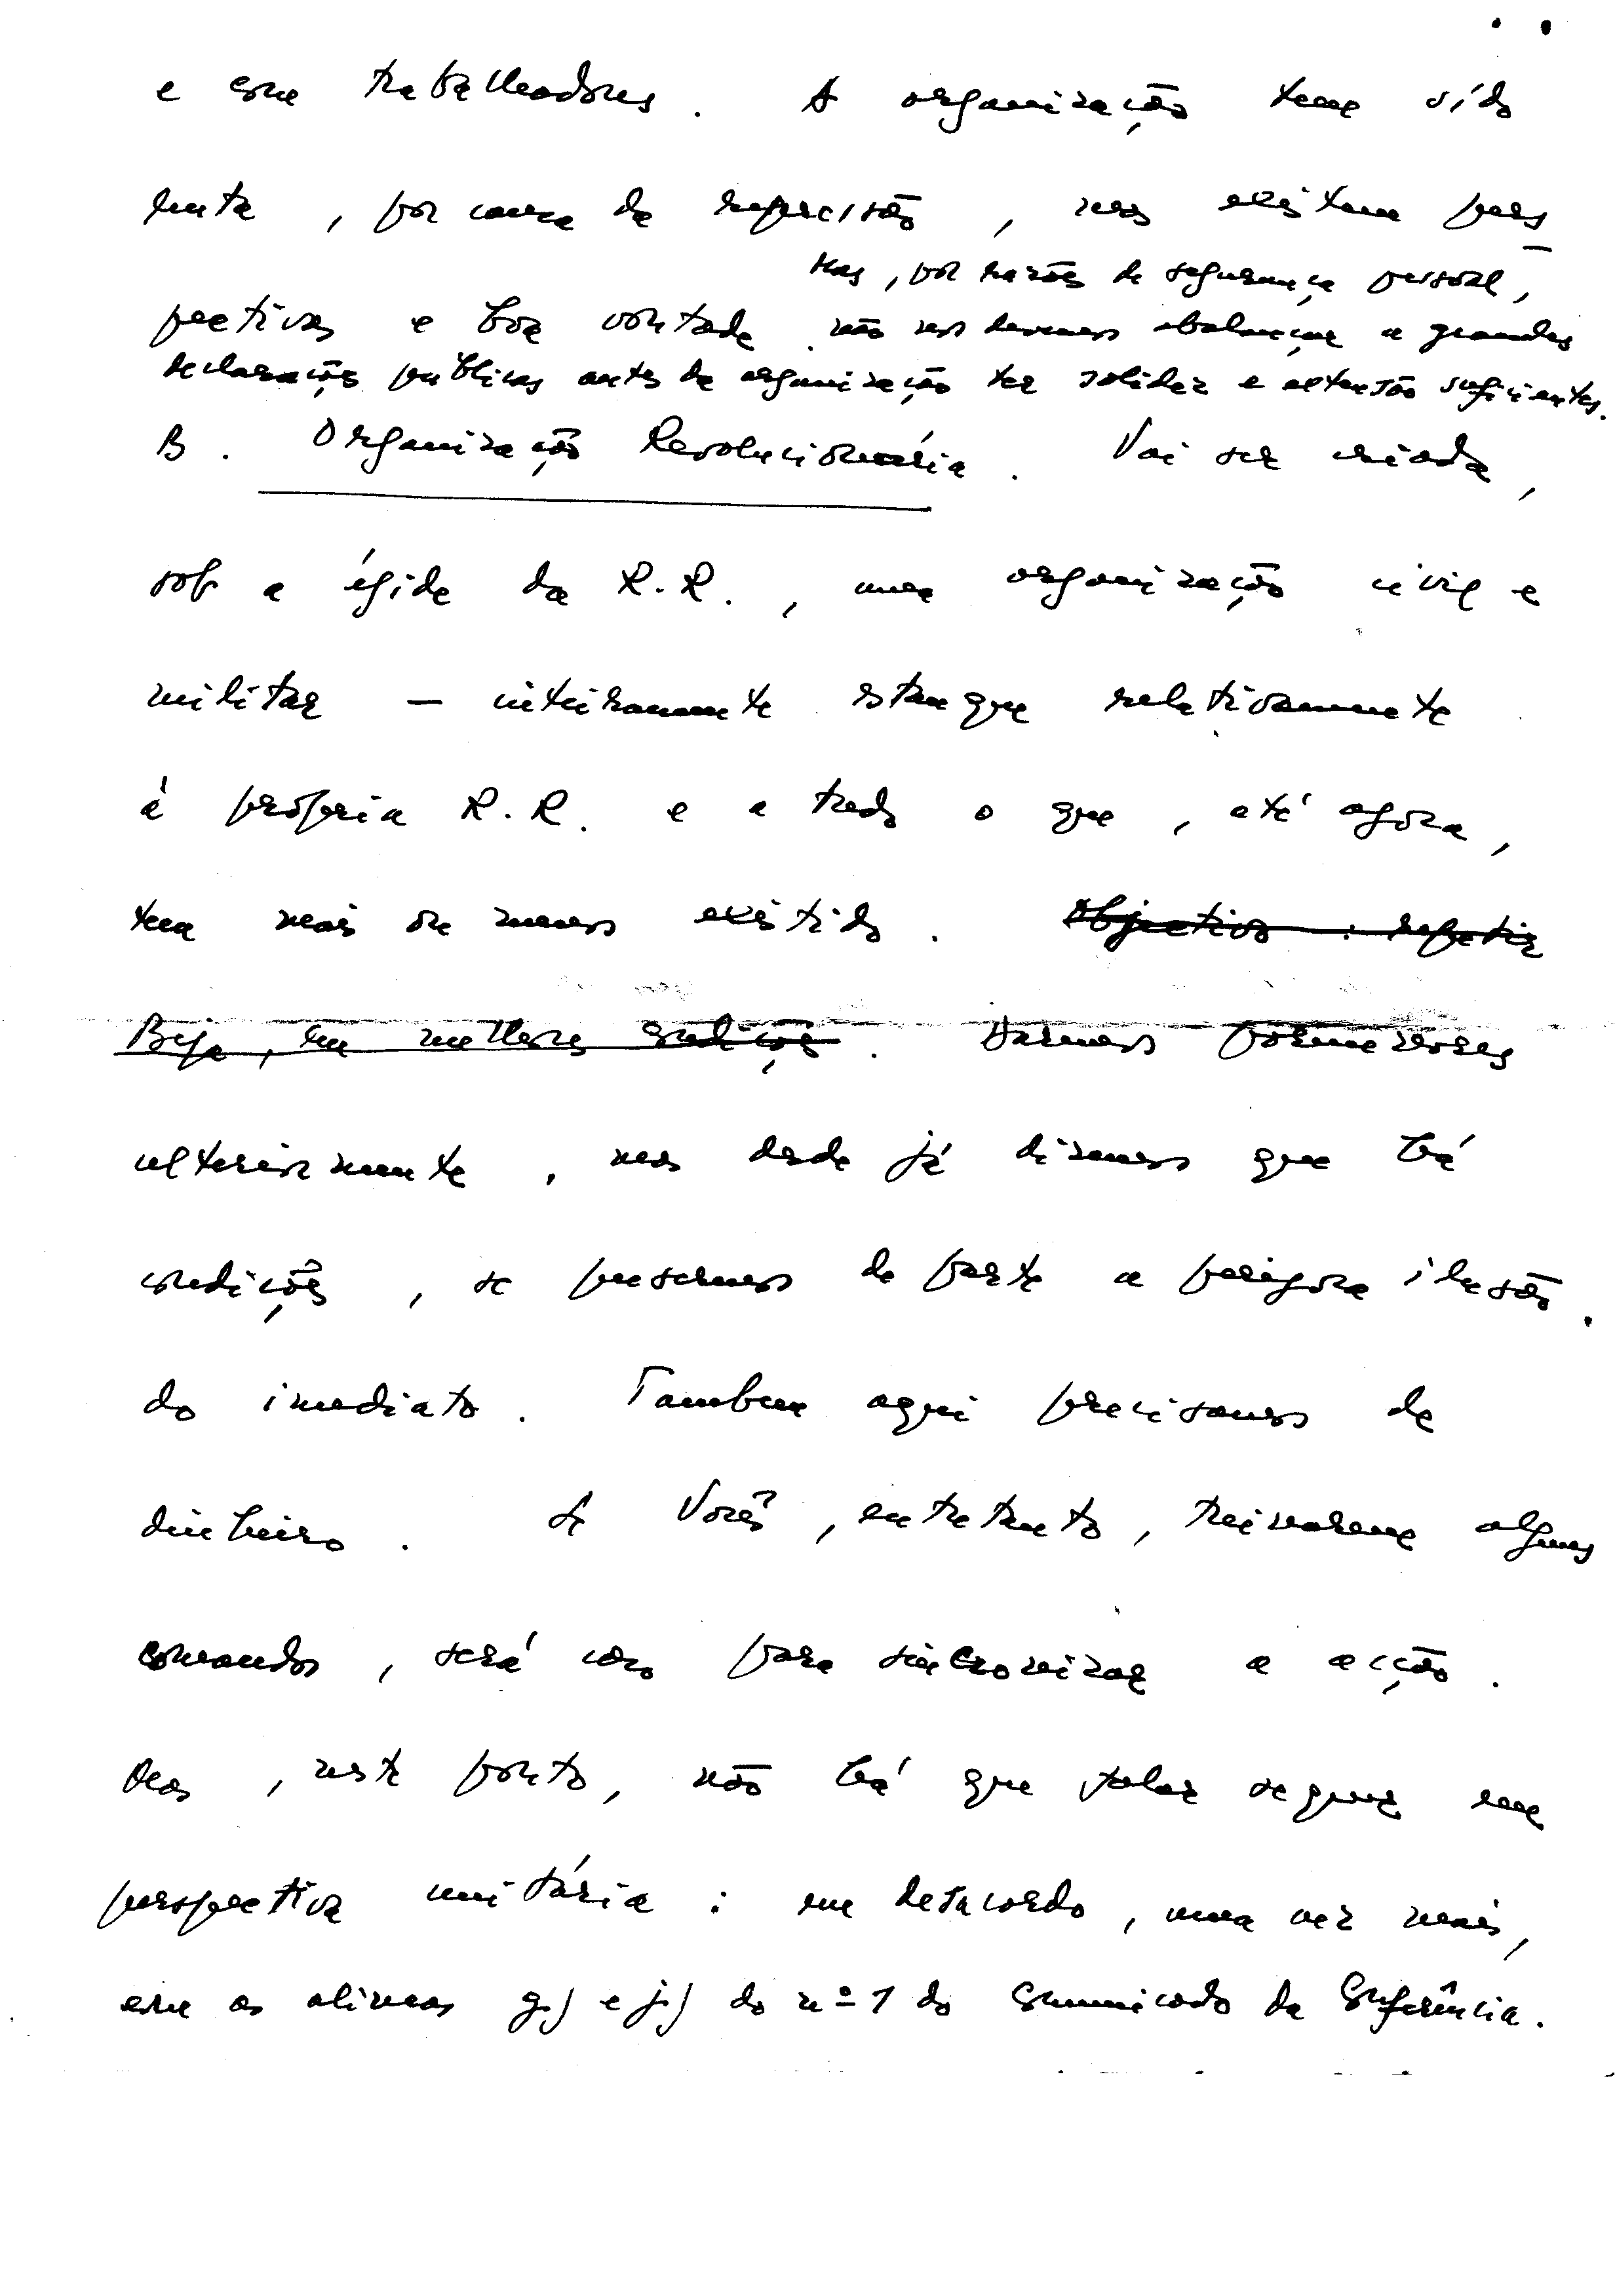 e com trabalhadores. A organização tem sido
lenta, por causa da repressão, mas existem pers
Mas, por razões de segurança pessoal,
pectivas e boa vontade. não nos devemos abalançar a grandes
declarações públicas antes da organização ter solidez e extensão suficientes.
B. Organização Revolucionária. Vai ser criada,
sob a égide da R.R., uma organização civil e
militar — inteiramente estanque relativamente
à própria R.R. e a tudo o que, até agora,
tem mais ou menos existido. Objectivo: repetir
Beja, em melhores condições. Daremos pormenores
ulteriormente, mas desde já dizemos que há
condições, se pusermos de parte a perigosa ilusão
do imediato. Tambem aqui precisamos de
dinheiro. Se Vocês, entretanto, treinarem alguns
comandos, será caso para sincronizar a acção.
Mas, neste ponto, não há que falar sequer em
perspectiva unitária: em desacordo, uma vez mais,
com as alineas g) e j) do nº 1 do Comunicado da Conferência.